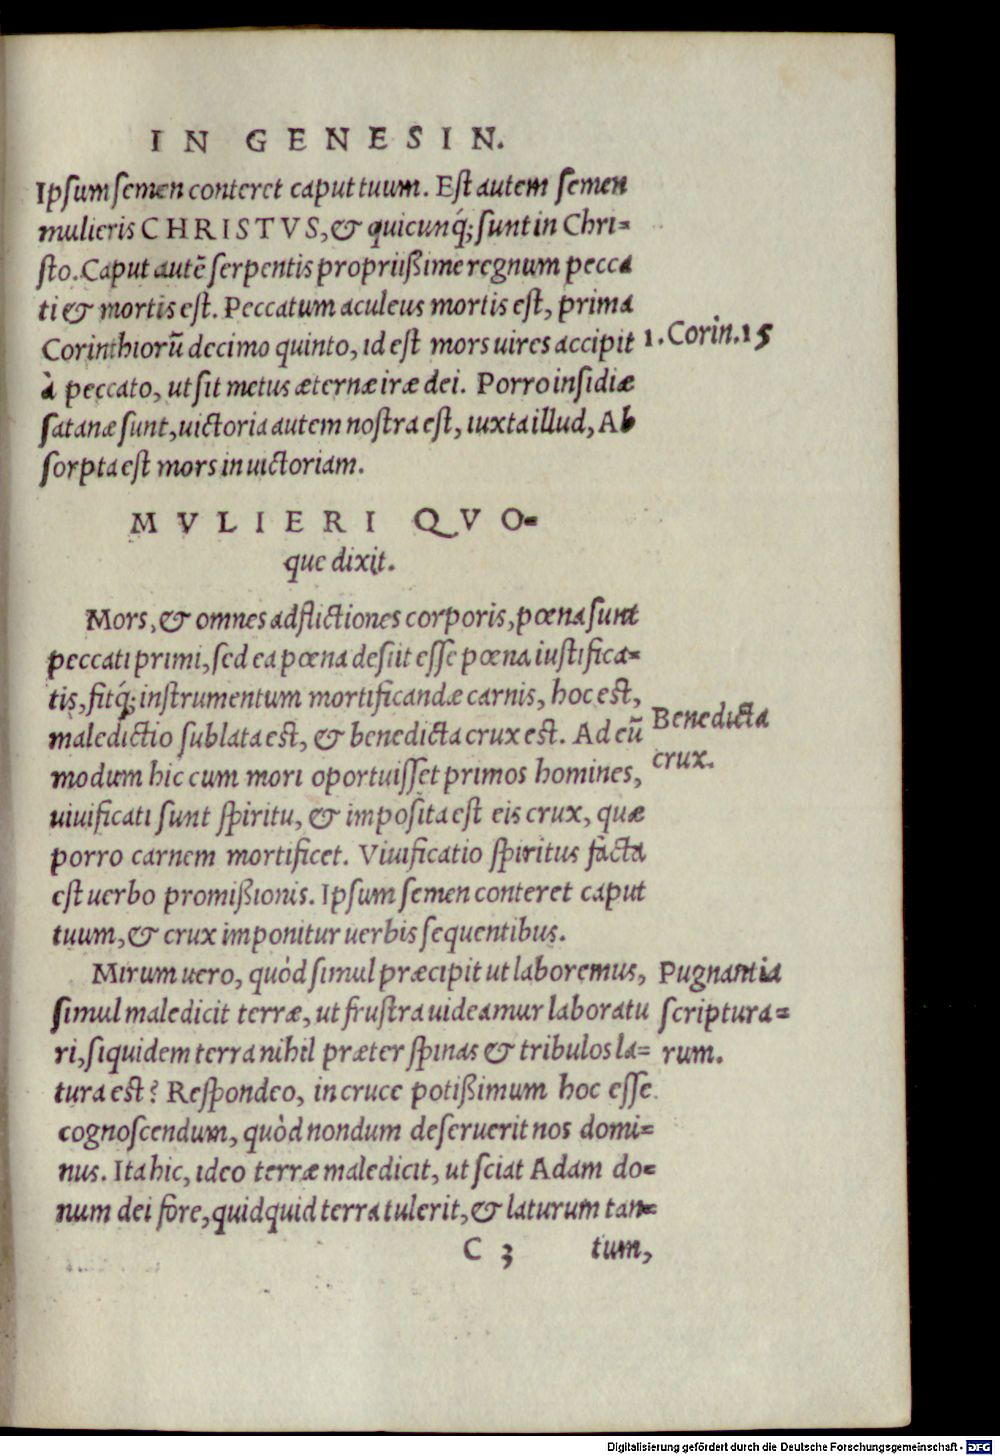 IN GENESIN.
Ipsum semen conteret caput tuum. Est autem semen
mulieris CHRISTVS, & quicunq́; sunt in Chri-
sto. Caput autē serpentis propriißime regnum pecca
ti & mortis est. Peccatum aculeus mortis est, prima
Corinthiorū decimo quinto, id est mors uires accipit
à peccato, ut sit metus æternæ iræ dei. Porro insidiæ
satanæ sunt, uictoria autem nostra est, iuxta illud, Ab
sorpta est mors in uictoriam.
1. Corin. 15
MVLIERI QVO-
que dixit.
Mors, & omnes adflictiones corporis, pœna sunt
peccati primi, sed ea pœna desiit esse pœna iustifica-
tis, fitq́; instrumentum mortificandæ carnis, hoc est,
maledictio sublata est, & benedicta crux est. Ad eū
modum hic cum mori oportuisset primos homines,
uiuificati sunt spiritu, & imposita est eis crux, quæ
porro carnem mortificet. Viuificatio spiritus facta
est uerbo promißionis. Ipsum semen conteret caput
tuum, & crux imponitur uerbis sequentibus.
Benedicta
crux.
Mirum uero, quòd simul præcipit ut laboremus,
simul maledicit terræ, ut frustra uideamur laboratu
ri, siquidem terra nihil præter spinas & tribulos la-
tura est? Respondeo, in cruce potißimum hoc esse
cognoscendum, quòd nondum deseruerit nos domi-
nus. Ita hic, ideo terræ maledicit, ut sciat Adam do-
num dei fore, quidquid terra tulerit, & laturum tan-
Pugnantia
scriptura-
rum.
C 3 tum,
Digitalisierung gefördert durch die Deutsche Forschungsgemeinschaft - DFG